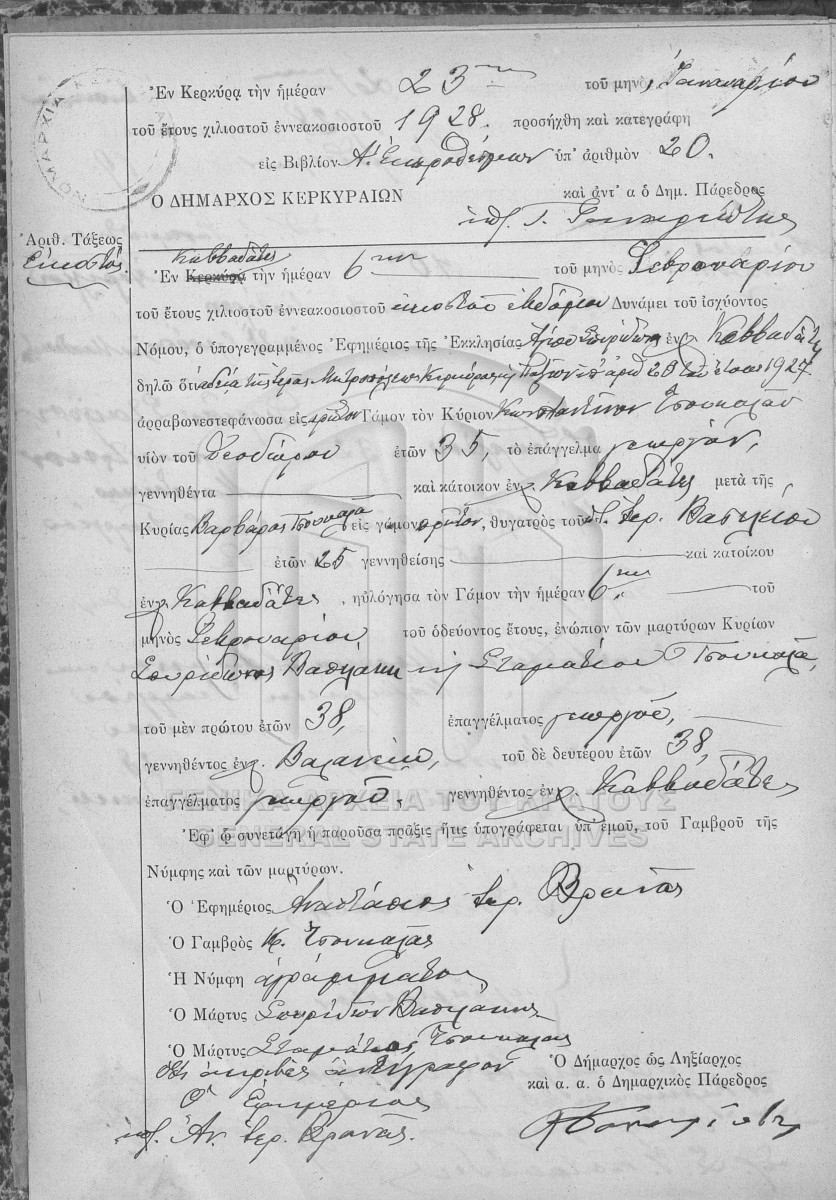 ΝΟΜΑΡΧΙΑ
Ἐν Κερκύρᾳ τὴν ἡμέραν 23ην τοῦ μηνὸς Ἰανουαρίου
τοῦ ἔτους χιλιοστοῦ ἐννεακοσιοστοῦ 1928. προσήχθη καὶ κατεγράφη
εἰς Βιβλίον Α. Ἐκπροθέσμων ὑπ' ἀριθμὸν 20.
Ο ΔΗΜΑΡΧΟΣ ΚΕΡΚΥΡΑΙΩΝ καὶ ἀντ' α ὁ Δημ. Πάρεδρος
Ἀριθ. Τάξεως
Εἰκοστὸς
Καββαδάτες
Ἐν Κερκύρᾳ τὴν ἡμέραν 6ην τοῦ μηνὸς Φεβρουαρίου
τοῦ ἔτους χιλιοστοῦ ἐννεακοσιοστοῦ εἰκοστοῦ ἑβδόμου Δυνάμει τοῦ ἰσχύοντος
Νόμου, ὁ ὑπογεγραμμένος Ἐφημέριος τῆς Ἐκκλησίας Ἁγίου Σπυρίδωνος ἐν χ. Καββαδάτες
δηλῶ ὅτι ἀδείᾳ τῆς Ἱερᾶς Μητροπόλεως Κερκύρας καὶ Παξῶν ὑπ' ἀριθ 20 τοῦ ἔτους 1927
ἀρραβωνεστεφάνωσα εἰς πρῶτον Γάμον τὸν Κύριον Κωνσταντῖνον Τσουκαλᾶν
υἱὸν τοῦ Θεοδώρου ἐτῶν 35, τὸ ἐπάγγελμα γεωργὸν,
γεννηθέντα καὶ κάτοικον ἐν χ. Καββαδάτες μετὰ τῆς
Κυρίας Βαρβάρας Τσουκαλᾶ εἰς γάμον πρῶτον, θυγατρὸς τοῦ π. Σπυρ. Βασιλείου
ἐτῶν 25 γεννηθείσης καὶ κατοίκου
ἐν χ. Καββαδάτες, ηὐλόγησα τὸν Γάμον τὴν ἡμέραν 6ην τοῦ
μηνὸς Φεβρουαρίου τοῦ ὁδεύοντος ἔτους, ἐνώπιον τῶν μαρτύρων Κυρίων
Σπυρίδωνος Βασιλάκη καὶ Σταματίου Τσουκαλᾶ,
τοῦ μὲν πρώτου ἐτῶν 38, ἐπαγγέλματος γεωργοῦ,
γεννηθέντος ἐν χ. Βαλανειό, τοῦ δὲ δευτέρου ἐτῶν 38,
ἐπαγγέλματος γεωργοῦ, γεννηθέντος ἐν χ. Καββαδάτες
ΓΕΝΙΚΑ ΑΡΧΕΙΑ ΤΟΥ ΚΡΑΤΟΥΣ
Ἐφ' ᾧ συνετάγη ἡ παροῦσα πρᾶξις ἥτις ὑπογράφεται ὑπ' ἐμοῦ, τοῦ Γαμβροῦ τῆς
GENERAL STATE ARCHIVES
Νύμφης καὶ τῶν μαρτύρων.
Ὁ Ἐφημέριος Ἀναστάσιος Ἱερ. Βρανᾶς
Ὁ Γαμβρὸς Κ. Τσουκαλᾶς
Ἡ Νύμφη ἀγράμματος
Ὁ Μάρτυς Σπυρίδων Βασιλάκης
Ὁ Μάρτυς Σταμάτιος Τσουκαλᾶς
Ὅτι ἀκριβὲς ἀντίγραφον
Ὁ Δήμαρχος ὡς Ληξίαρχος
καὶ α. α. ὁ Δημαρχικὸς Πάρεδρος
Ὁ Ἐφημέριος
ὑπ. Ἀν. Ἱερ. Βρανᾶς.